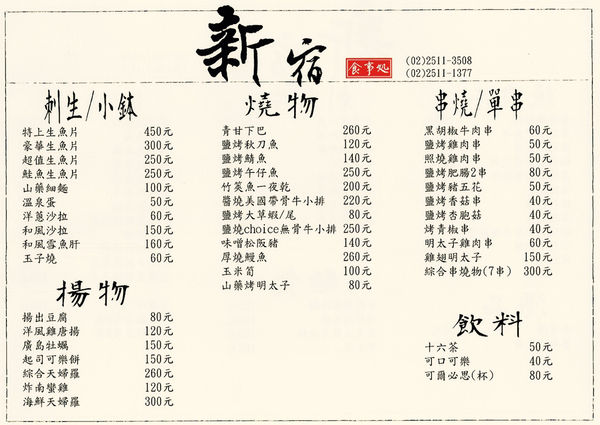 新宿
食事処
(02)2511-3508
(02)2511-1377
刺生/小鉢
特上生魚片 450元
豪華生魚片 300元
超值生魚片 250元
鮭魚生魚片 250元
山藥細麵 100元
溫泉蛋 50元
洋蔥沙拉 60元
和風沙拉 150元
和風雪魚肝 160元
玉子燒 60元
揚物
揚出豆腐 80元
洋風雞唐揚 120元
廣島牡蠣 150元
起司可樂餅 150元
綜合天婦羅 260元
炸南蠻雞 120元
海鮮天婦羅 300元
燒物
青甘下巴 260元
鹽烤秋刀魚 120元
鹽烤鯖魚 140元
鹽烤午仔魚 250元
竹筴魚一夜乾 200元
醬燒美國帶骨牛小排 220元
鹽烤大草蝦/尾 80元
鹽燒choice無骨牛小排 250元
味噌松阪豬 140元
厚燒鰻魚 260元
玉米筍 100元
山藥烤明太子 80元
串燒/單串
黑胡椒牛肉串 60元
鹽烤雞肉串 50元
照燒雞肉串 50元
鹽烤肥腸2串 80元
鹽烤豬五花 50元
鹽烤香菇串 40元
鹽烤杏胞菇 40元
烤青椒串 40元
明太子雞肉串 60元
雞翅明太子 150元
綜合串燒物(7串) 300元
飲料
十六茶 50元
可口可樂 40元
可爾必思(杯) 80元